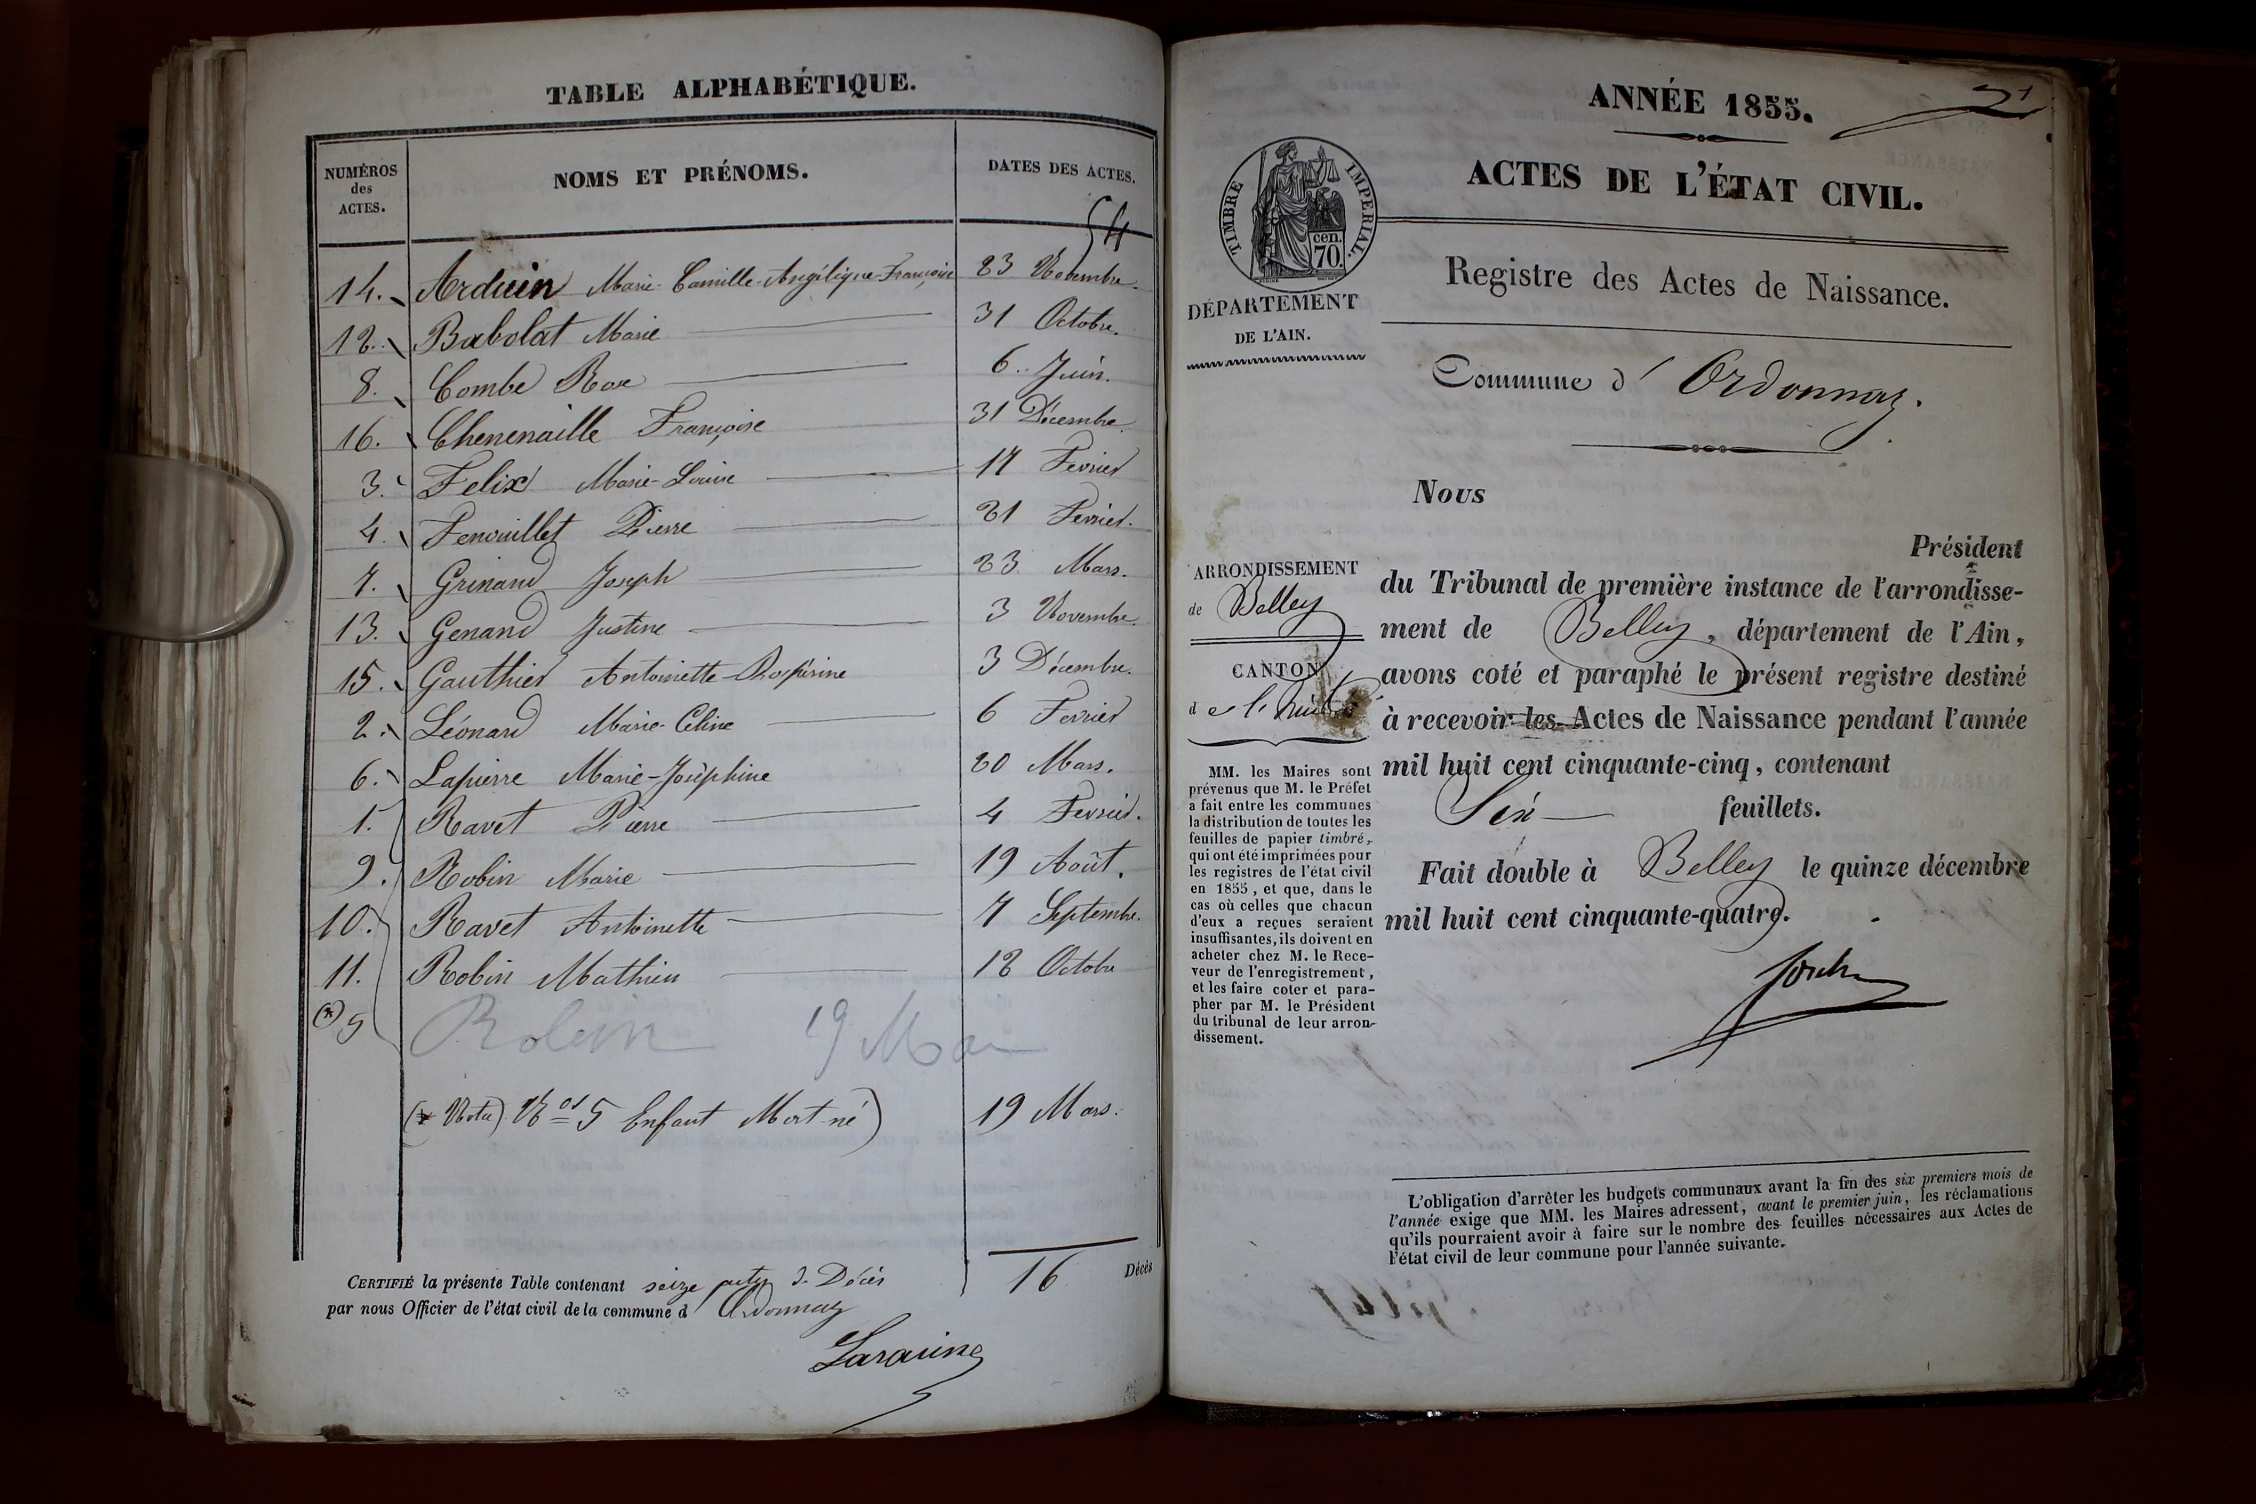 TABLE ALPHABÉTIQUE.
NUMÉROS
des
ACTES.
NOMS ET PRÉNOMS.
DATES DES ACTES.
54
14. Arduin Marie-Camille-Angélique-Françoise 23 Novembre.
12. Babolat Marie 31 Octobre.
8. Combe Rose 6. Juin.
16. Chenenaille Françoise 31 Décembre.
3. Felix Marie-Louise 17 Fevrier
4. Fenouillet Pierre 21 Fevrier.
7. Grinand Joseph 23 Mars.
13. Genand Justine 3 Novembre.
15. Gauthier Antoinette-Prospérine 3 Décembre.
2. Léonard Marie-Celine 6 Fevrier
6. Lapierre Marie-Josèphine 20 Mars.
1. Ravet Pierre 4 Fevrier.
9. Robin Marie 19 Août.
10. Ravet Antoinette 7 Septembre.
11. Robin Mathieu 12 Octobre
(*) 5 Robin 19 Mar
(* Nota) Nos 5 Enfant Mort-né) 19 Mars.
16 Décès
CERTIFIÉ la présente Table contenant seize actes de Décès
par nous Officier de l'état civil de la commune d Ordonnaz
ANNÉE 1855.
ACTES DE L'ÉTAT CIVIL.
TIMBRE IMPERIAL.
cen.
70.
DÉPARTEMENT
DE L'AIN.
Registre des Actes de Naissance.
Commune d' Ordonnaz.
ARRONDISSEMENT
de Belley
CANTON
MM. les Maires sont
prévenus que M. le Préfet
a fait entre les communes
la distribution de toutes les
feuilles de papier timbré,
qui ont été imprimées pour
les registres de l'état civil
en 1855, et que, dans le
cas où celles que chacun
d'eux a reçues seraient
insuffisantes, ils doivent en
acheter chez M. le Rece-
veur de l'enregistrement,
et les faire coter et para-
pher par M. le Président
du tribunal de leur arron-
dissement.
Nous
Président
du Tribunal de première instance de l'arrondisse-
ment de Belley, département de l'Ain,
avons coté et paraphé le présent registre destiné
à recevoir les Actes de Naissance pendant l'année
mil huit cent cinquante-cinq, contenant
Six feuillets.
Fait double à Belley le quinze décembre
mil huit cent cinquante-quatre.
L'obligation d'arrêter les budgets communaux avant la fin des six premiers mois de
l'année exige que MM. les Maires adressent, avant le premier juin, les réclamations
qu'ils pourraient avoir à faire sur le nombre des feuilles nécessaires aux Actes de
l'état civil de leur commune pour l'année suivante.